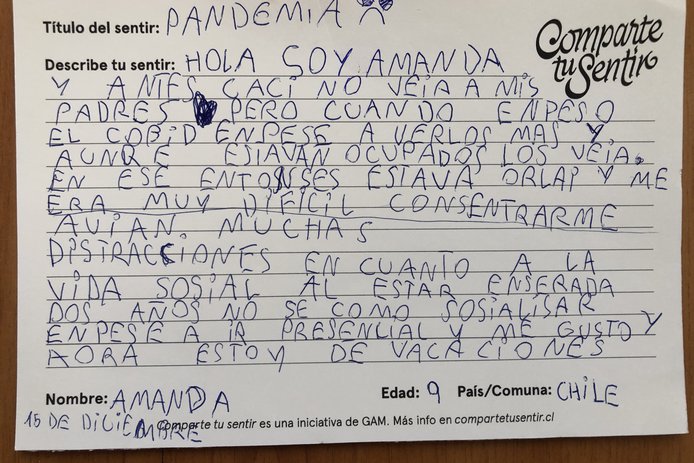 Título del sentir: PANDEMIA
Comparte
tu Sentir
Describe tu sentir: HOLA SOY AMANDA
Y ANTES CACI NO VEIA A MIS
PADRES PERO CUANDO ENPESO
EL COBID ENPESE A VERLOS MAS Y
AUNQ E ESTAVAN OCUPADOS LOS VEIA.
EN ESE ENTONSES ESTAVA Y ME
ERA MUY DIFICIL CONSENTRARME
AVIAN MUCHAS
DISTRACCIONES EN CUANTO A LA
VIDA SOSIAL AL ESTAR ENSERADA
DOS AÑOS NO SE COMO SOSIALISAR
ENPESE A IR PRESENCIAL Y ME GUSTO Y
AORA ESTOY DE VACACIONES
Nombre: AMANDA Edad: 9 País/Comuna: CHILE
15 DE DICIEMBRE
Comparte tu sentir es una iniciativa de GAM. Más info en compartetusentir.cl